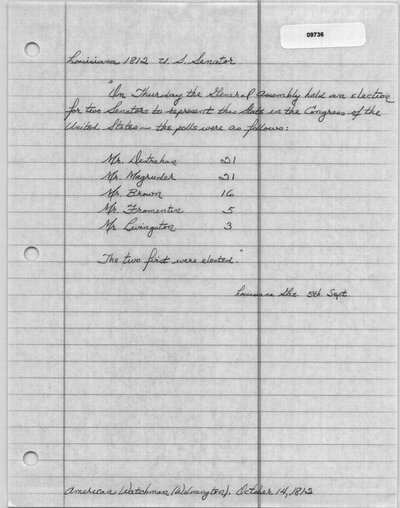 09736
Louisiana 1812 U. S. Senator
"On Thursday the General Assembly held an election
for two Senators to represent this State in the Congress of the
United States — the polls were as follows:
Mr. Destrehan 21
Mr. Magruder 21
Mr. Brown 16
Mr. Fromentin 5
Mr Livingston 3
The two first were elected."
Louisiana Gaz 5th. Sept.
American Watchman (Wilmington). October 14, 1812